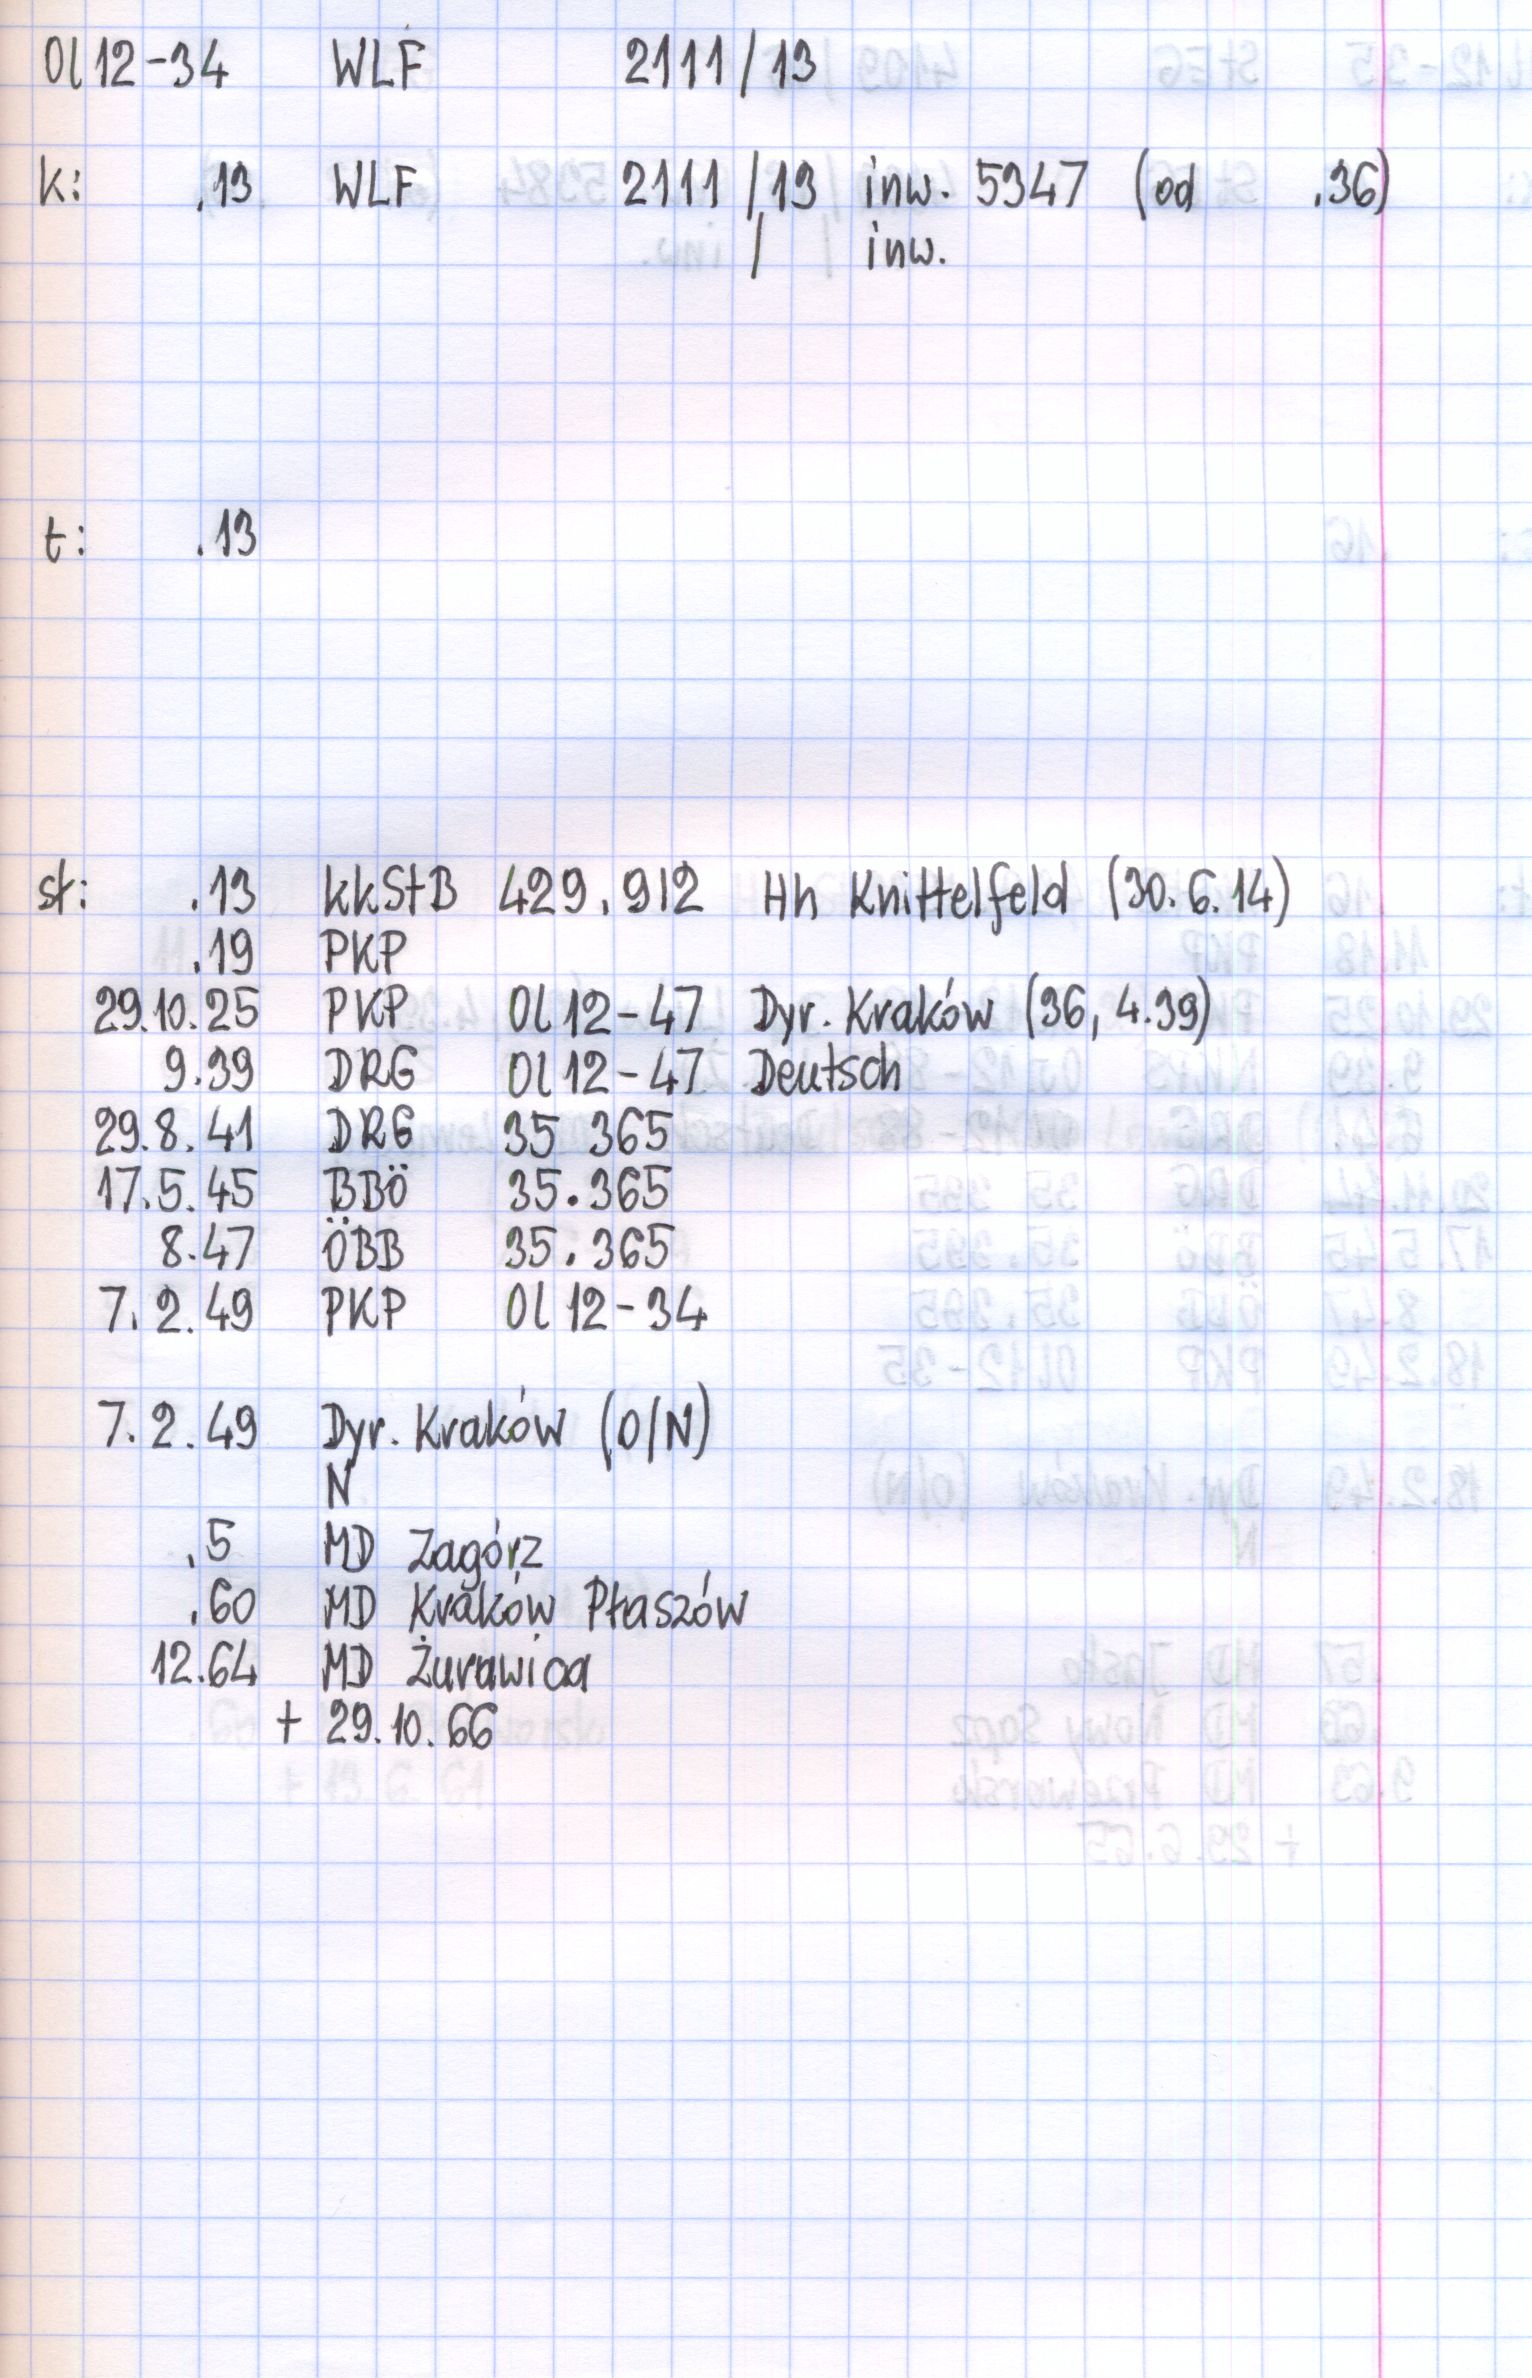 Ol12-34 WLF 2111/13
k: .13 WLF 2111/13 inw. 5347 (od .36)
/ inw.
t: .13
st: .13 kkStB 429.912 Hh Knittelfeld (30.6.14)
.19 PKP
29.10.25 PKP Ol12-47 Dyr. Kraków (36, 4.39)
9.39 DRG Ol12-47 Deutsch
29.8.41 DRG 35 365
17.5.45 BBÖ 35.365
8.47 ÖBB 35.365
7.2.49 PKP Ol12-34
7.2.49 Dyr. Kraków (O/N)
N
.5 MD Zagórz
.60 MD Kraków Płaszów
12.64 MD Żurawica
+ 29.10.66